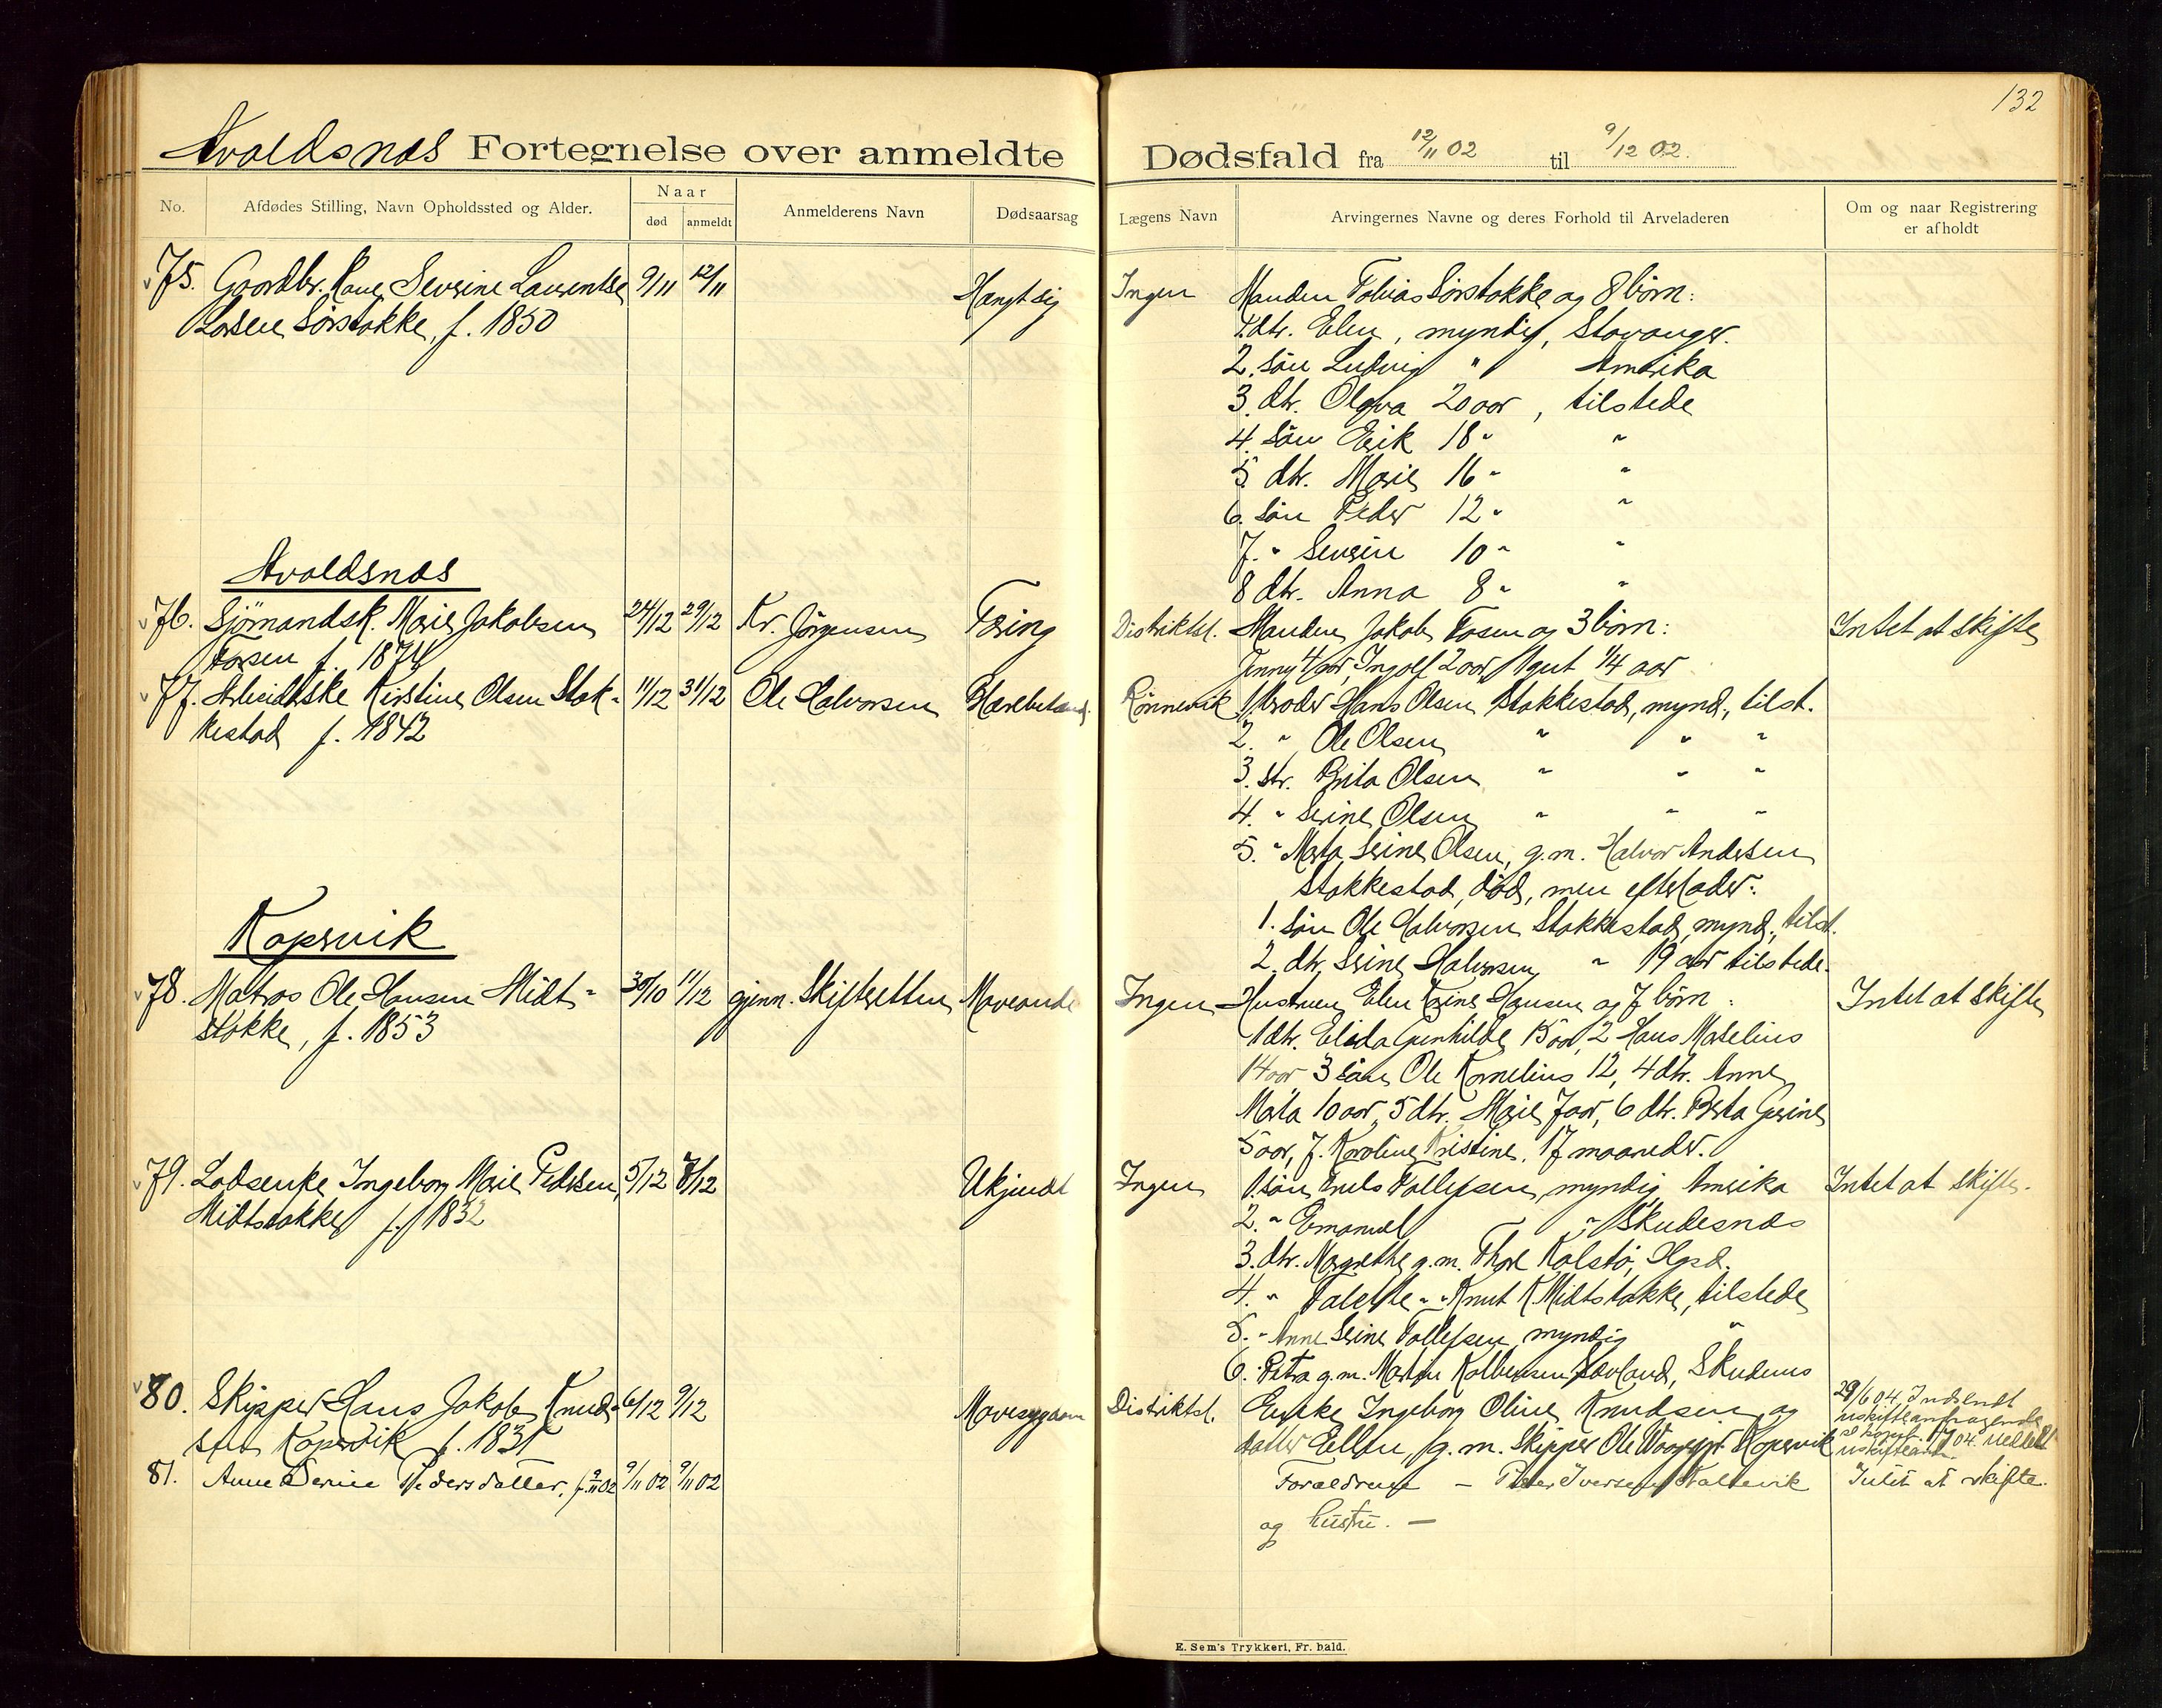 132
Avaldsnes Fortegnelse over anmeldte Dødsfald fra 12/11 02 til 9/12 02.
No. Afdødes Stilling, Navn Opholdssted og Alder. Naar død anmeldt Anmelderens Navn Dødsaarsag Lægens Navn Arvingernes Navne og deres Forhold til Arveladeren Om og naar Registrering er afholdt
75. Gaardbr. Kone Severine Laurentse 9/11 12/11 Hængt sig Ingen Manden Tobias Sørstokke og 8 børn:
Larsen Sørstokke, f. 1850 1. dtr. Elen, myndig, Stavanger.
2. søn Ludvig " Amerika
3. dtr. Olava 20 aar, tilstede
4. søn Erik 18 " "
5 dtr. Marie 16 " "
6. søn Peder 12 " "
7. " Severin 10 " "
Avaldsnes
8 dtr. Anna 8 " "
76. Sjömandsk. Marie Jakobsen 24/12 29/12 Kr. Jörgensen Tæring Distriktsl. Manden Jakob Fosen og 3 børn: Intet at skifte
Fosen f. 1874 Jenny 4 aar, Ingolf 2 aar, Agnt 1/4 aar
77. Arbeidsske Kirstine Olsen Stok- 11/12 31/12 Ole Halvorsen Rönnevik 1 Broder Hans Olsen Stokkestad, mynd., tilst.
kestad f. 1842 2. " Ole Olsen " " "
3. str. Brita Olsen " " "
4. " Serine Olsen " " "
5. " Marta Serine Olsen, g.m. Halvor Andersen
Stokkestad, død, men efterlader:
Kopervik
1. Søn Ole Halvorsen Stokkestad, mynd., tilst.
2. dtr. Serine Halvorsen " 19 aar tilstede.
78. Matros Ole Hansen Midt- 30/10 11/12 gjenn. Skifteretten Maveonde Ingen Hustruen Elen Karine Hansen og 7 børn: Intet at skifte
stokke, f. 1853 1 dtr. Elida Gunhilde 15 aar, 2 Hans Matelius
14 aar 3 søn Ole Kornelius 12, 4 dtr. Anne
Marta 10 aar, 5 dtr. Marie 7 aar, 6 dtr. Berta Gurine
5 aar, 7. Karoline Kristine. 17 maaneder.
79. Lodsenke Ingeborg Marie Pedersen 5/12 8/12 Ukjendt Ingen 1. søn Enels Tollefsen, myndig Amerika Intet at skifte.
Midtstokke f. 1832 2. " Emanuel " Skudesnes
3. dtr. Margrethe g.m. Thore Kalstø, Hgsd.
4. " Talette " " Knut K Midtstokke, tilstede
5. " Anne Serine Tollefsen myndig "
6. Petra g.m. Martin Kolbensen Sævland, Skudenes
80. Skipper Hans Jakob Knud- 6/12 9/12 Mavesygdom Distriktsl. Enke Ingeborg Oline Knudsen og 29/6 04 Indsendt
sen Kopervik f. 1831 datter Ellen, g.m. Skipper Ole Kopervik uskifteandragende
81. Anne Serine Pedersdatter, f. 9/11 02 9/11 02 9/11 02 Foraldrene – Peder Iversen Intet at skifte.
og hustru. –
E. Sem's Trykkeri, Fr.hald.